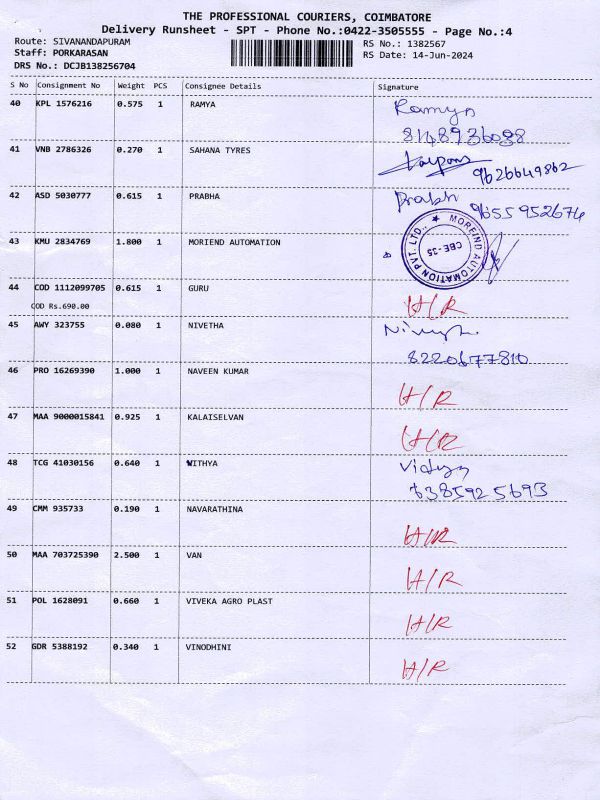 THE PROFESSIONAL COURIERS, COIMBATORE
Delivery Runsheet - SPT - Phone No.:0422-3505555 - Page No.:4
Route: SIVANANDAPURAM RS No.: 1382567
Staff: PORKARASAN RS Date: 14-Jun-2024
DRS No.: DCJB138256704
S No Consignment No Weight PCS Consignee Details Signature
40 KPL 1576216 0.575 1 RAMYA Ramya
8148936088
41 VNB 2786326 0.270 1 SAHANA TYRES
9626649862
42 ASD 5030777 0.615 1 PRABHA Prabh
9655952674
43 KMU 2834769 1.800 1 MORIEND AUTOMATION
MOREIND AUTOMATION PVT. LTD., ★
CBE-35
44 COD 1112099705 0.615 1 GURU H/R
COD Rs.690.00
45 AWY 323755 0.080 1 NIVETHA
8220677810
46 PRO 16269390 1.000 1 NAVEEN KUMAR H/R
47 MAA 9000015841 0.925 1 KALAISELVAN H/R
48 TCG 41030156 0.640 1 WITHYA Vidya
6385925693
49 CMM 935733 0.190 1 NAVARATHINA H/R
50 MAA 703725390 2.500 1 VAN H/R
51 POL 1628091 0.660 1 VIVEKA AGRO PLAST H/R
52 GDR 5388192 0.340 1 VINODHINI H/R